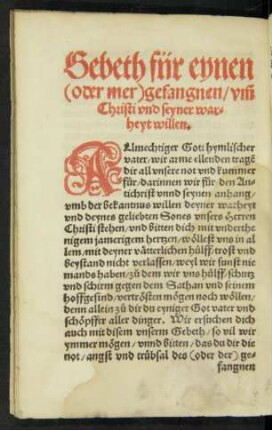 Gebeth für eynen
(oder mer) gefangnen / vm̄
Christi vnd seyner war-
heyt willen.
ALmechtiger Got hymlischer
vater / wir arme ellenden tragē
dir all vnsere not vnd kummer
für / darinnen wir für den An-
tichrist vnnd seynen anhang /
vmb der bekantnus willen deyner warheyt
vnd deynes geliebten Sones vnsers Herren
Christi stehen / vnd bitten dich mit vnderthe
nigem jamerigem hertzen / wöllest vns in al
lem / mit deyner vätterlichen hülff / trost vnd
beystand nicht verlassen / weyl wir sunst nie
mands haben / zů dem wir vns hülff / schutz
vnd schirm gegen dem Sathan vnd seinem
hoffgesind / vertrösten mögen noch wöllen /
denn allein zů dir du eyniger Got vater vnd
schöpffer aller dinger. Wir ersůchen dich
auch mit disem vnserm Gebeth / so vil wir
ymmer mögen / vnnd bitten / das du dir die
not / angst vnd trübsal des (oder der) ge-
fangnen